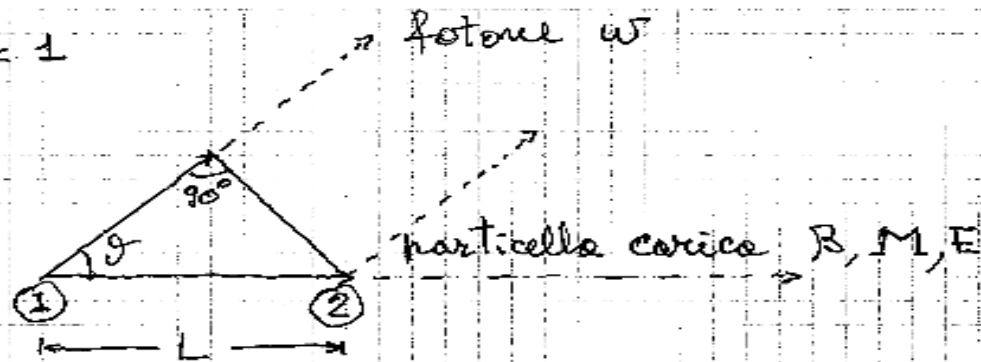 = 1
fotone ω
90°
ϑ
particella carica β, M, E
① ②
L